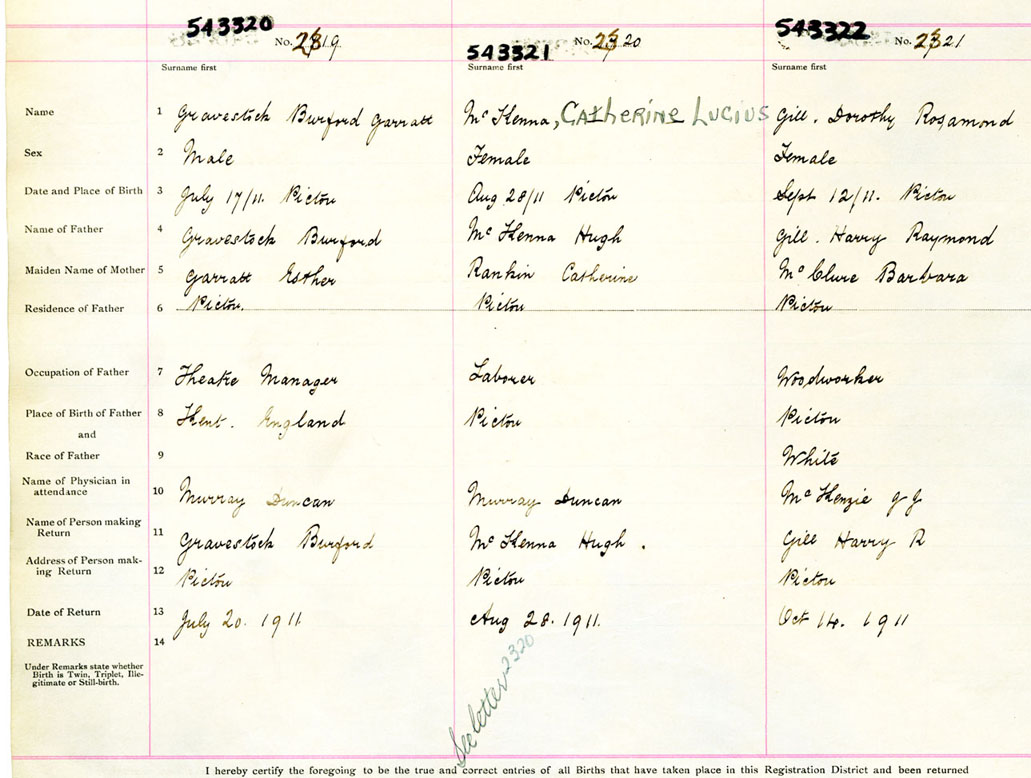 543320 543321 543322
No. 2319 No. 2320 No. 2321
Surname first Surname first Surname first
Name 1 Gravestock Burford Garratt Mc Kenna, Catherine Lucius Gill. Dorothy Rosamond
Sex 2 Male Female Female
Date and Place of Birth 3 July 17/11. Pictou Aug 28/11 Pictou Sept 12/11. Pictou
Name of Father 4 Gravestock Burford Mc Kenna Hugh Gill. Harry Raymond
Maiden Name of Mother 5 Garratt Esther Rankin Catherine Mc Clure Barbara
Residence of Father 6 Pictou. Pictou Pictou
Occupation of Father 7 Theatre Manager Laborer Woodworker
Place of Birth of Father 8 Kent. England Pictou Pictou
and
Race of Father 9 White
Name of Physician in
attendance 10 Murray Duncan Murray Duncan Mc Kenzie J J
Name of Person making
Return 11 Gravestock Burford Mc Kenna Hugh. Gill Harry R
Address of Person mak-
ing Return 12 Pictou Pictou Pictou
Date of Return 13 July 20. 1911 Aug 28. 1911. Oct 14. 1911
REMARKS 14
Under Remarks state whether
Birth is Twin, Triplet, Ille-
gitimate or Still-birth.
See letter 2320
I hereby certify the foregoing to be the true and correct entries of all Births that have taken place in this Registration District and been returned